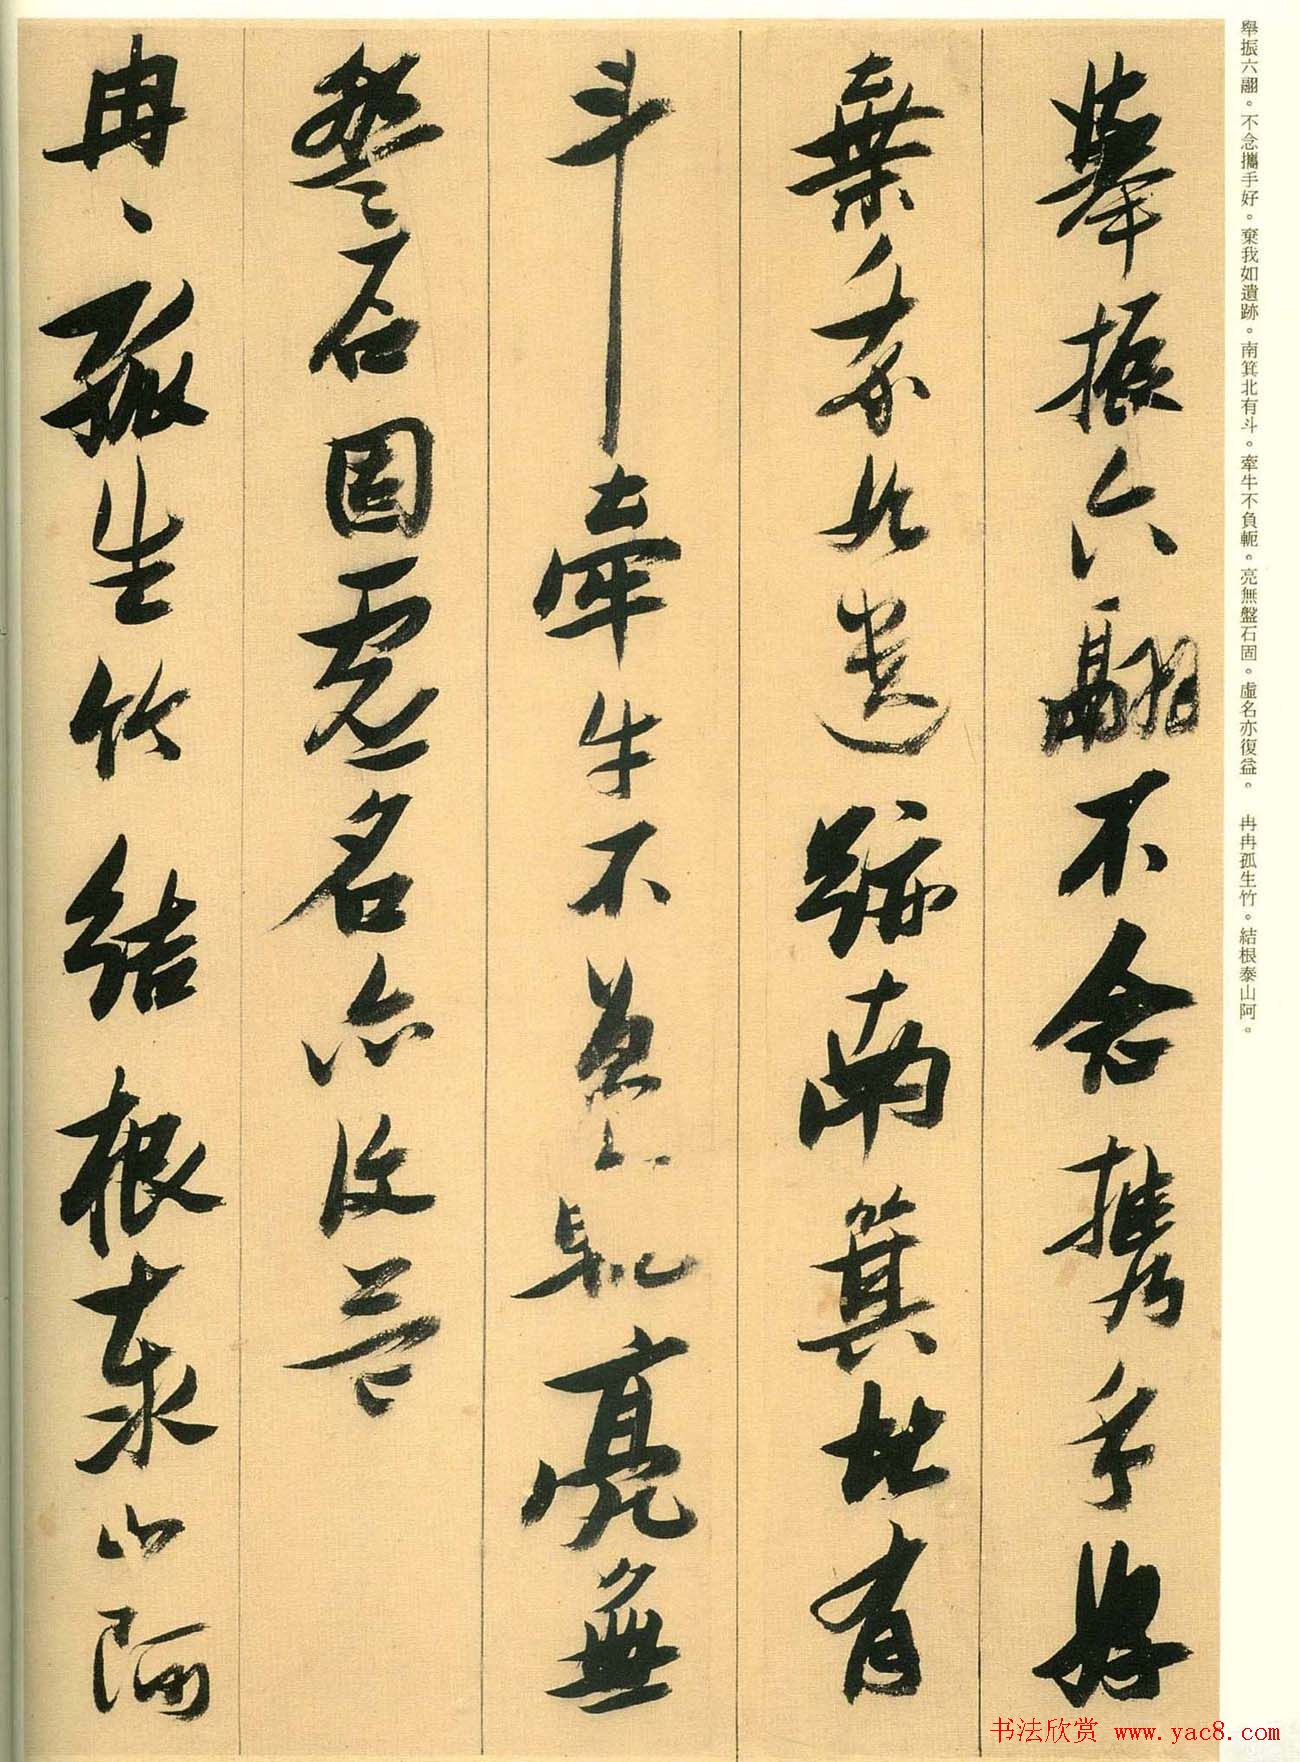 舉振六翮。不念攜手好。棄我如遺跡。南箕北有斗。牽牛不負軛。亮無盤石固。虛名亦復益。　冉冉孤生竹。結根泰山阿。
舉振六翮不念攜手好
棄我如遺跡南箕北有
斗牽牛不負軛亮無
盤石固虛名亦復益
冉〻孤生竹結根泰山阿
书法欣赏 www.yac8.com